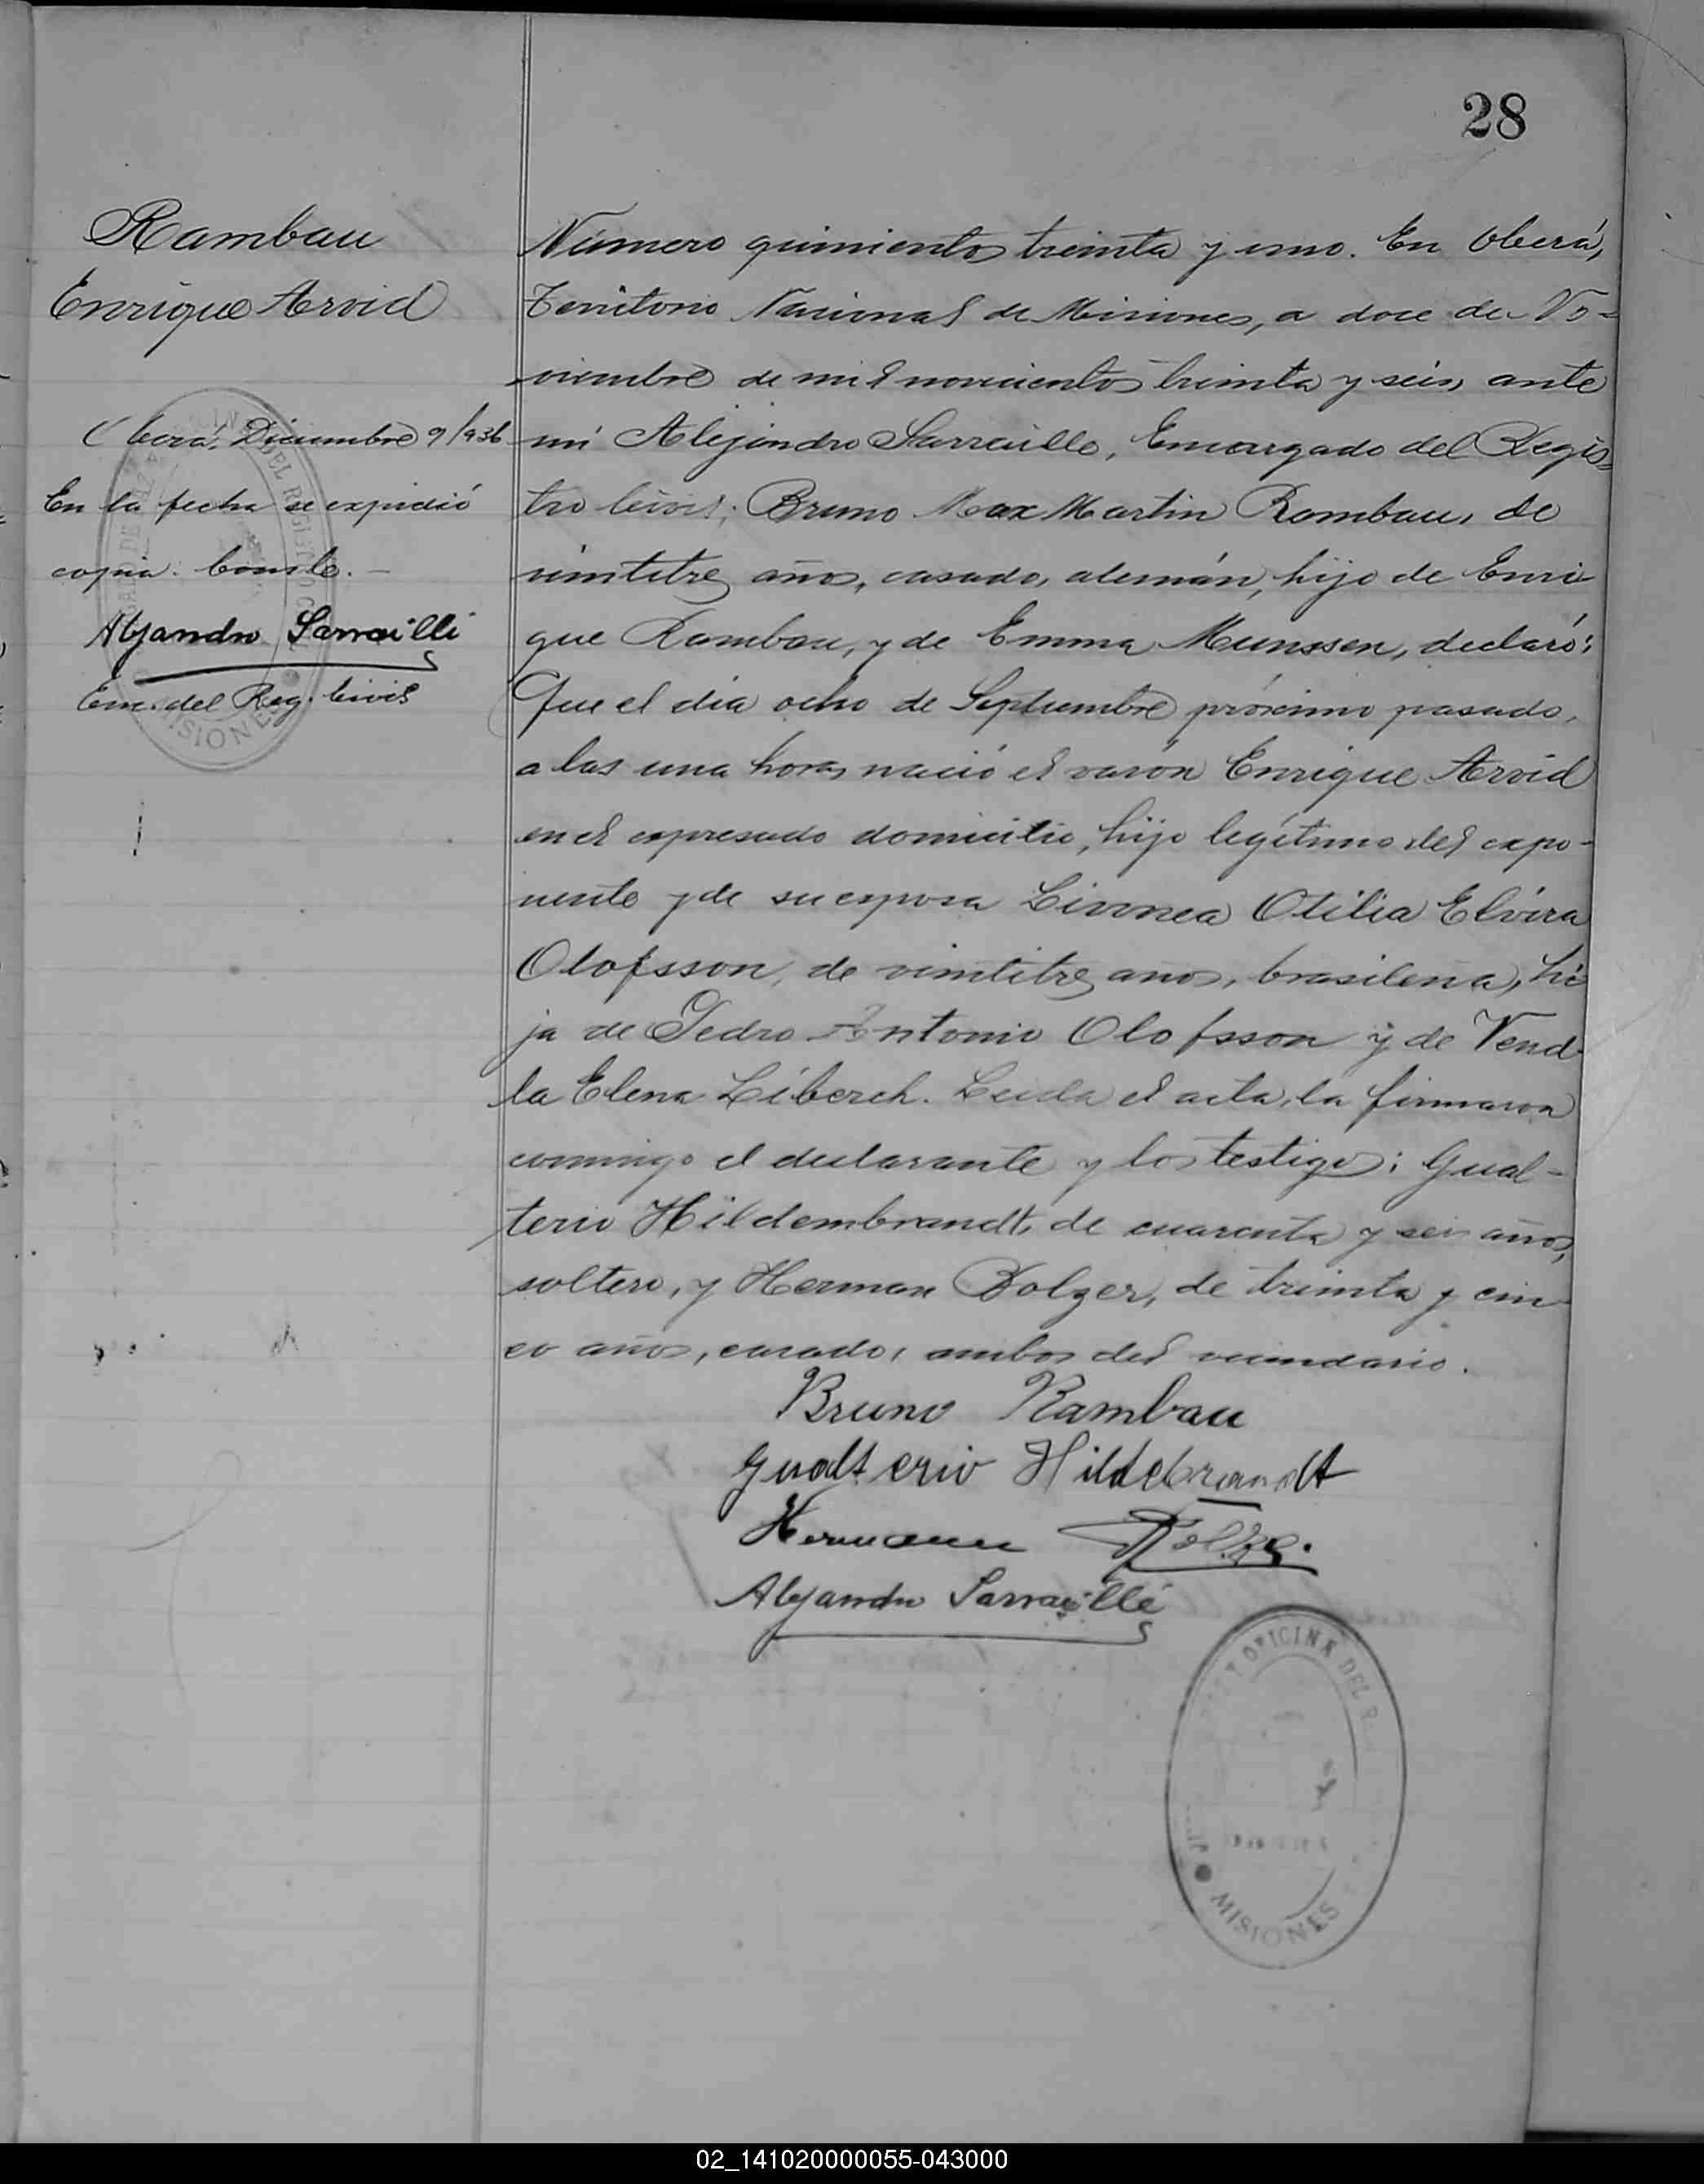 28
Rambau
Enrique Arvid
Oberá, Diciembre 9/936
En la fecha se expidió
copia. Conste.-
Alejandro Sarraillé
Enc. del Reg. Civil
Número quinientos treinta y uno. En Oberá,
Territorio Nacional de Misiones, a doce de No=
viembre de mil novecientos treinta y seis, ante
mí Alejandro Sarraille, Encargado del Regis=
tro Civil; Bruno Max Martin Rambau, de
veintitres años, casado, alemán, hijo de Enri
que Rambau, y de Emma Munssen, declaró:
Que el día ocho de Septiembre próximo pasado,
a las una horas nació el varón Enrique Arvid
en el expresado domicilio, hijo legítimo del expo-
nente y de su esposa Livonea Otilia Elvira
Olofsson, de veintitres años, brasileña, hi
ja de Pedro Antonio Olofsson y de Vend-
la Elena Liberch. Leída el acta, la firmaron
conmigo el declarante y los testigos: Gual-
terio Hildembrandt, de cuarenta y seis años,
soltero, y Herman Bolzer, de treinta y cin-
co años, casado, ambos del vecindario.
Bruno Rambau
Gualterio Hildebrandt
Hermann
Alejandro Sarraillé
OFICINA DEL R
MISIONES